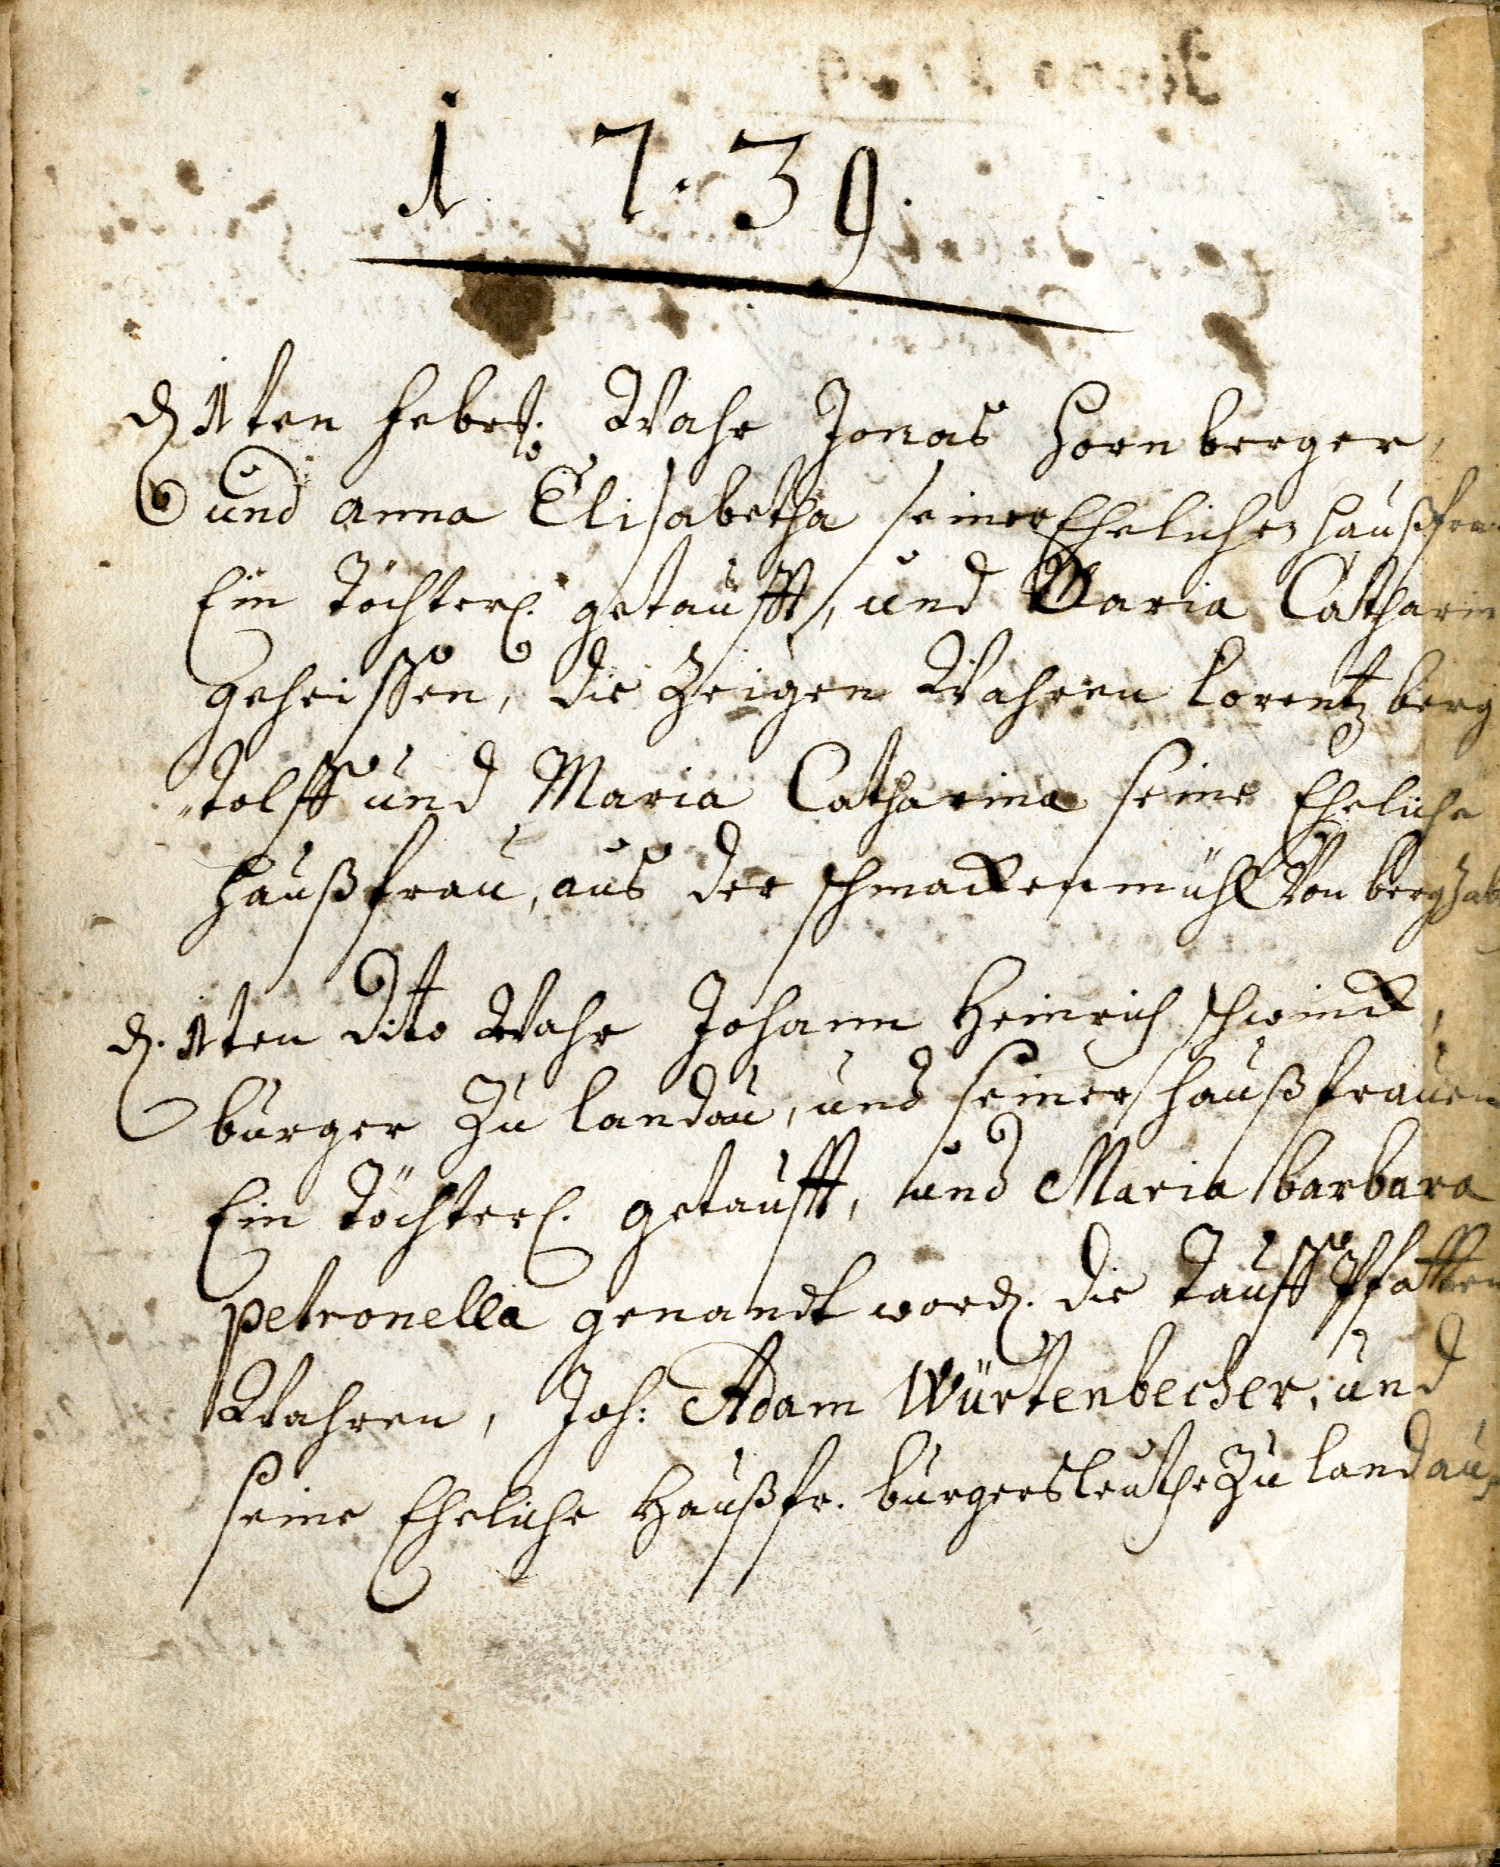 1 7.39.
d 1ten febr: Wahr Jonas Hornberger,
und anna Elisabetha seiner Ehelichen Haußfra
Ein töchterl. getaufft, und Maria Catharin
geheissen, die Zeügen Wahren Lorentz berg
"tolff und Maria Catharina seine Eheliche
Haußfrau, aus der schmackenmühl Von bergzab
d. 1ten dito Wahr Johann Heinrich schwinck,
burger Zu landau, und seiner Haußfrauen
Ein töchterl. getaufft, und Maria barbara
petronella genandt word. die tauff Pfetten
Wahren, Joh: Adam Würtenbecher, und
seine Eheliche Haußfr. burgersleuthe Zu landau,